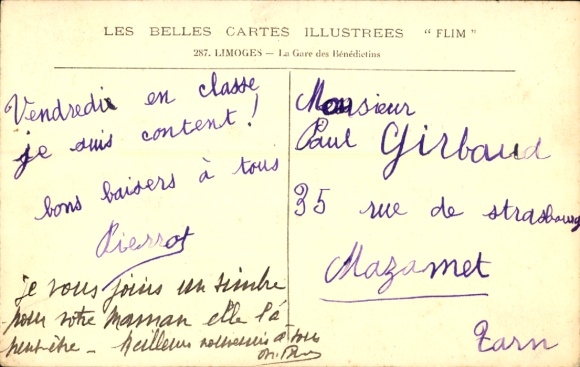 LES BELLES CARTES ILLUSTREES "FLIM"
287. LIMOGES — La Gare des Bénédictins
Vendredi en classe
je suis content!
bons baisers à tous
Pierrot
je vous joins un timbre
pour votre maman elle l'a
peut-être - Meilleurs à tous
Monsieur
Paul Girbaud
35 rue de strasbourg
Mazamet
Tarn